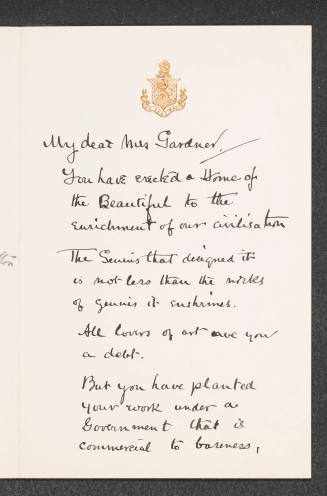 My dear Mrs Gardner.
You have erected a Home of
the Beautiful to the
enrichment of our civilisation
The Genius that designed it
is not less than the works
of genius it enshrines.
All lovers of art owe you
a debt.
But you have planted
your work under a
Government that is
commercial to baseness,